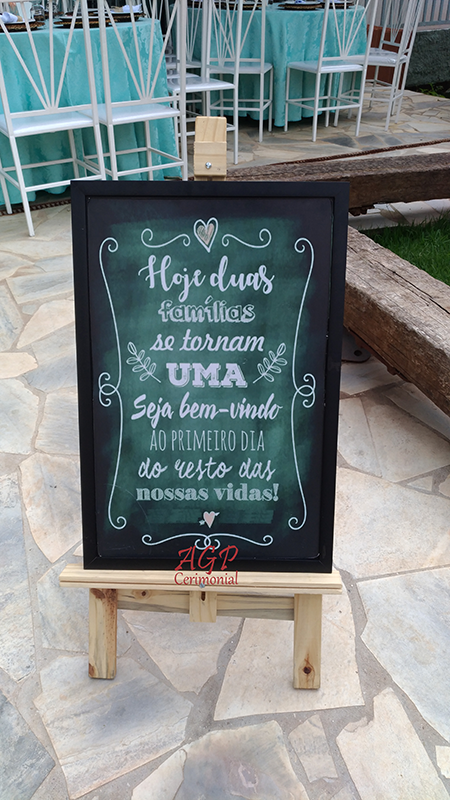 Hoje duas
famílias
se tornam
UMA
Seja bem-vindo
AO PRIMEIRO DIA
do resto das
nossas vidas!
AGP
Cerimonial